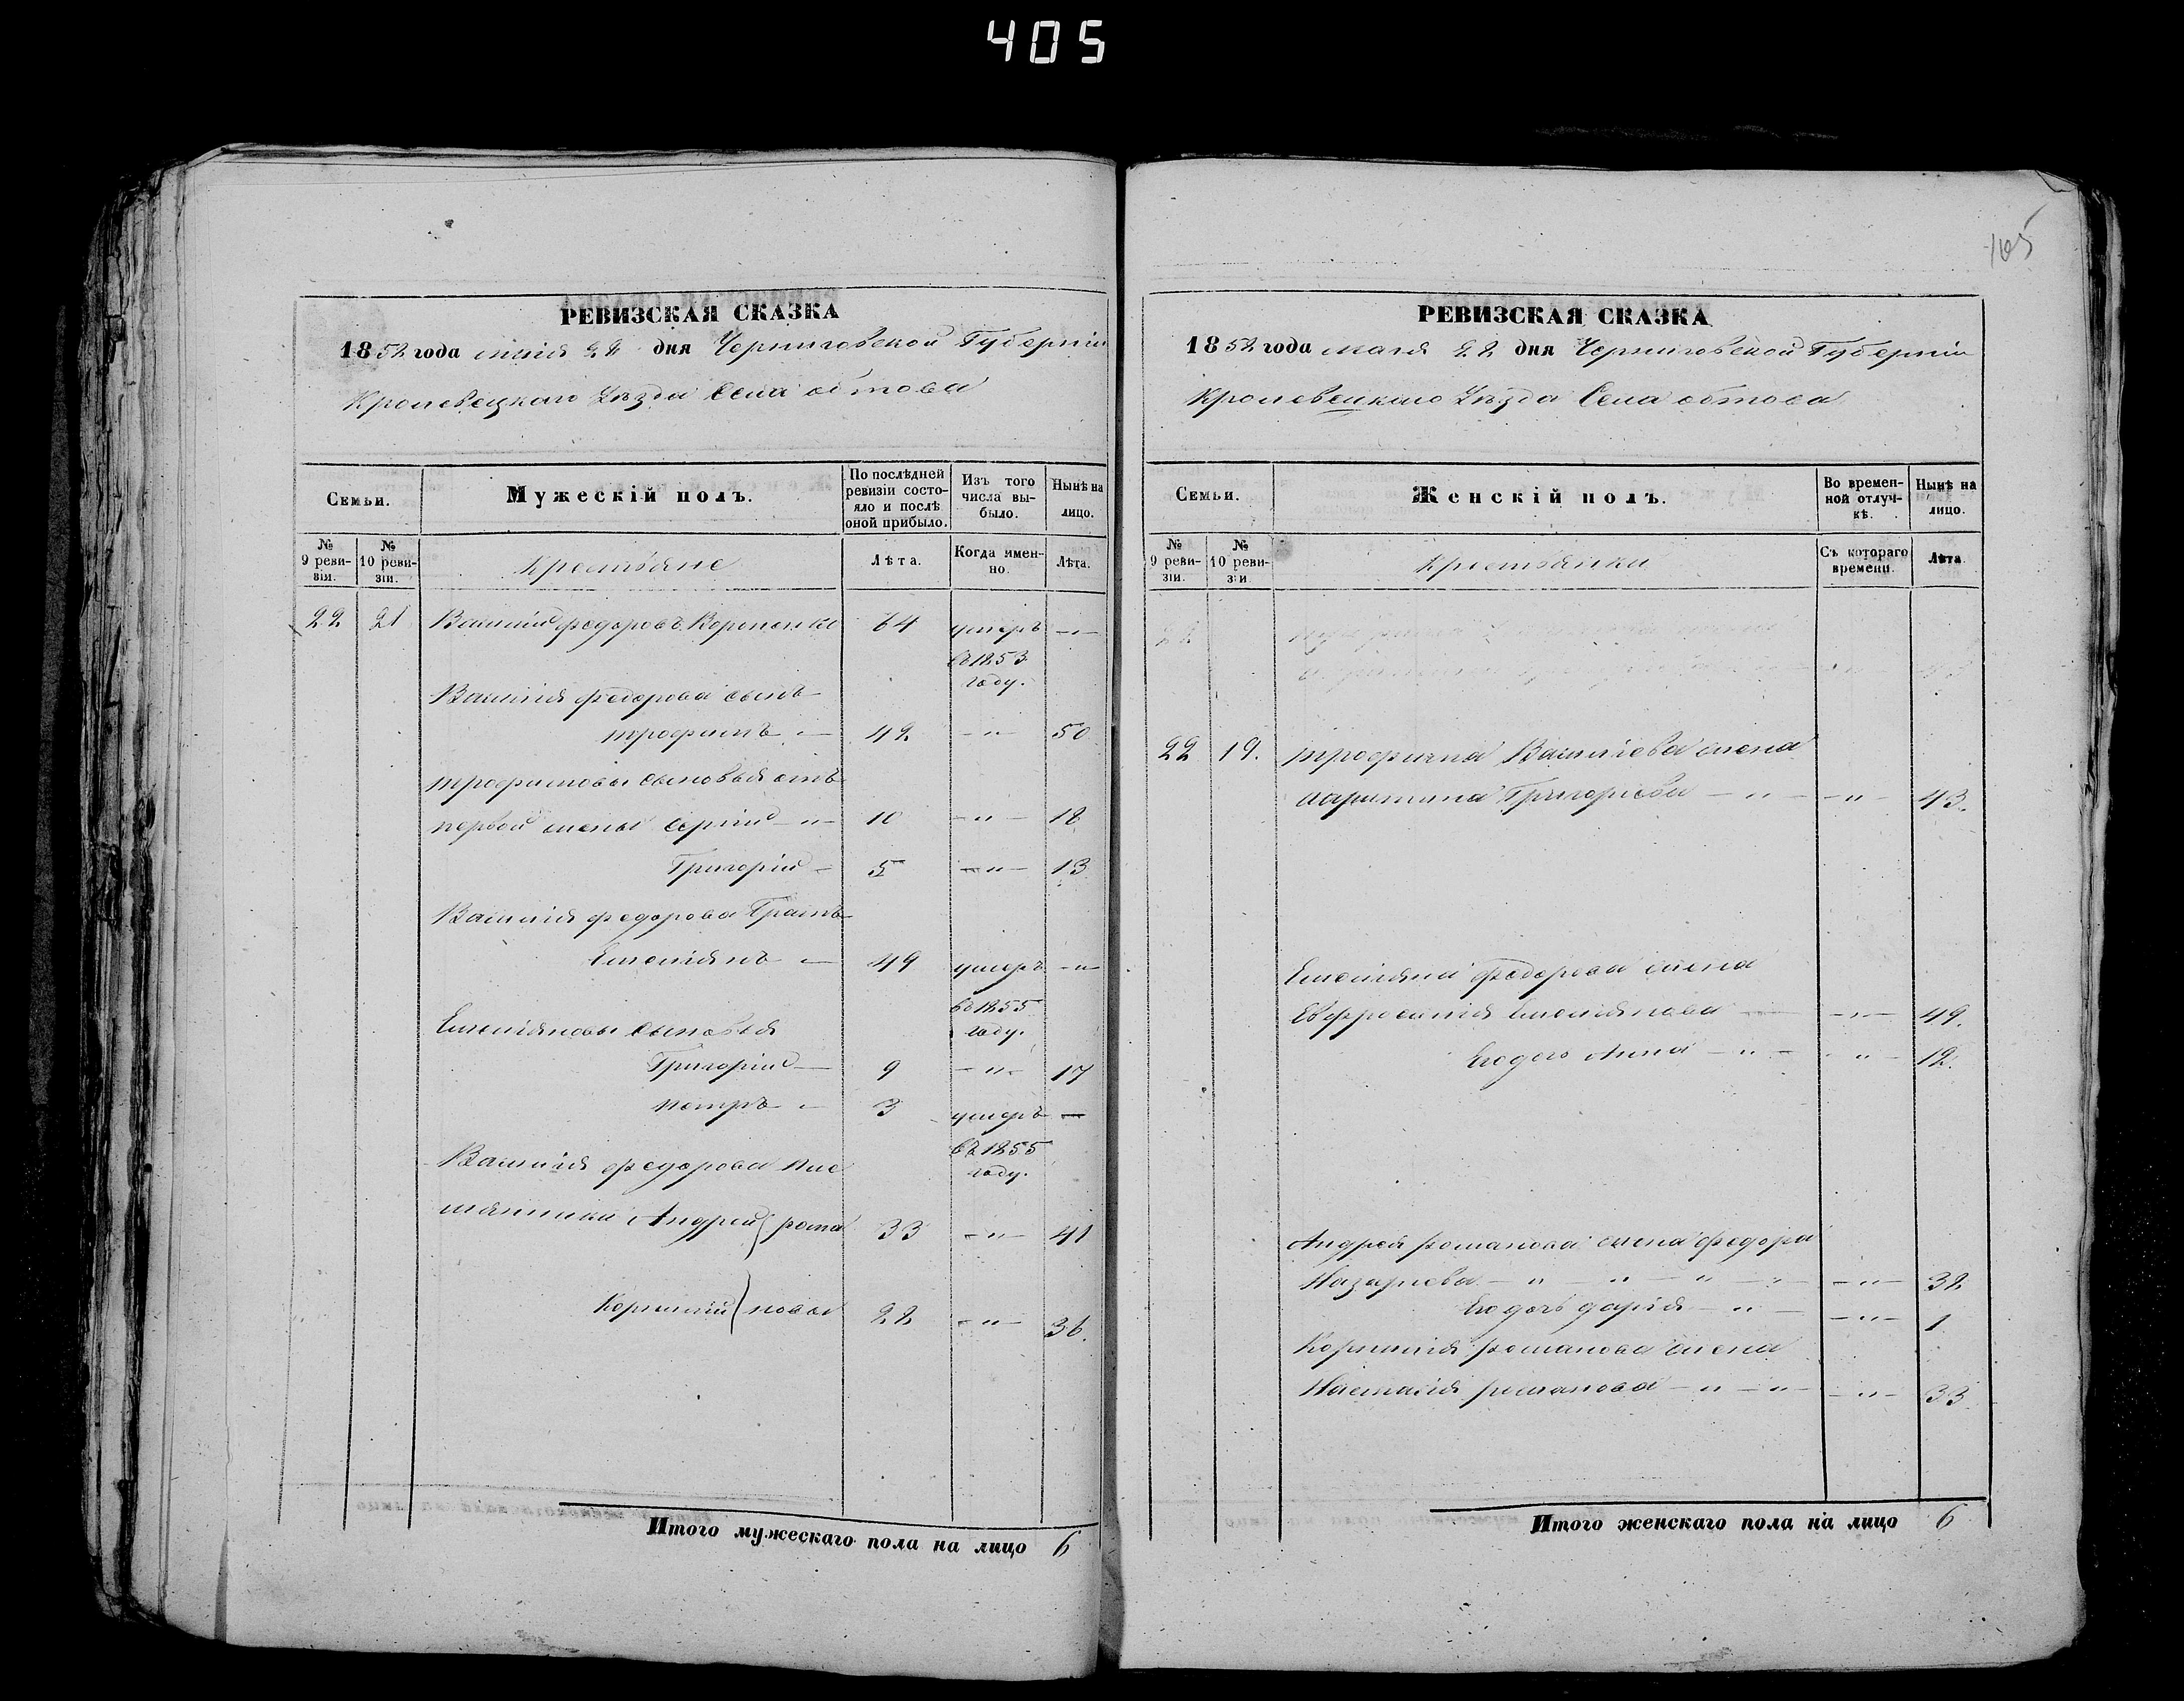 405
105
РЕВИЗСКАЯ СКАЗКА
1852 года маія 22 дня Черниговской Губерніи
Кролевецкаго Уѣзда Села обтова
Семьи.
Мужескій полъ.
По послѣдней ревизіи состояло и послѣ оной прибыло.
Изъ того числа выбыло.
Нынѣ на лицо.
№ 9 ревизіи.
№ 10 ревизіи.
Крестьяне
Лѣта.
Когда именно.
Лѣта.
22 21 Василій федоровъ 64 умеръ —
въ 1853
году.
Василія федорова сынъ
трофимъ — 42 — " — 50
трофимовы сыновья отъ
первой жены Сергій — " — 10 — " — 18
Григорій — 5 — " — 13
Василія федорова братъ
Емельянъ — 49 умеръ — " —
въ 1855
году.
Емельяновы сыновья
Григорій — 9 — " — 17
петръ — 3 умеръ —
въ 1855
году.
Василія федорова пле
мянники Андрей рома 33 — " — 41
Корнилій новы 22 — " — 36.
Итого мужескаго пола на лицо 6
РЕВИЗСКАЯ СКАЗКА
1852 года маія 22 дня Черниговской Губерніи
Кролевецкаго Уѣзда Села обтова
Семьи.
Женскій полъ.
Во временной отлучкѣ.
Нынѣ на лицо.
№ 9 ревизіи.
№ 10 ревизіи
Крестьянки
Съ котораго времени.
Лѣта
22 19. трофима Васильева жена
Григорьева — " — — " — 43.
Емельяна федорова жена
Евфросинія Емельянова — — " — 49.
Егодочь Анна — " — " — 12.
Андрея романова жена федора
Назарьева — " — " — " — " — — " — 32
Егодочь дарья — " — — " — 1
Корнилія романова жена
Наталія романова — " — " — — " — 33
Итого женскаго пола на лицо 6